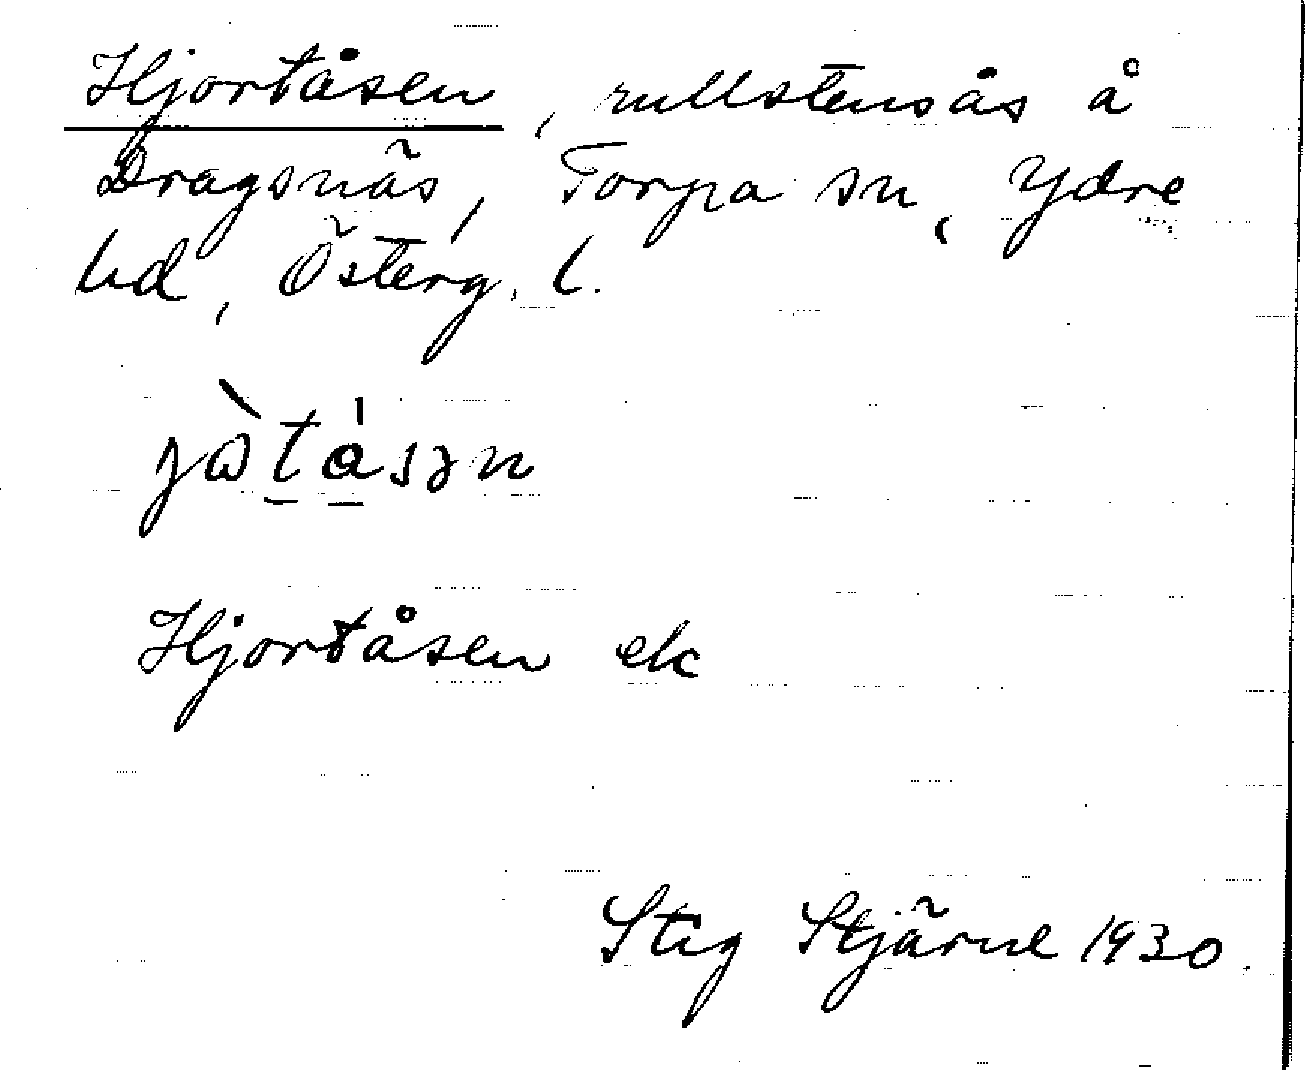 Hjortåsen, rullstensås å
Dragsnäs, Torpa sn, Ydre
hd, Österg. l.
jɷ̀tásən
Hjortåsen ek
Stig Stjärne 1930.